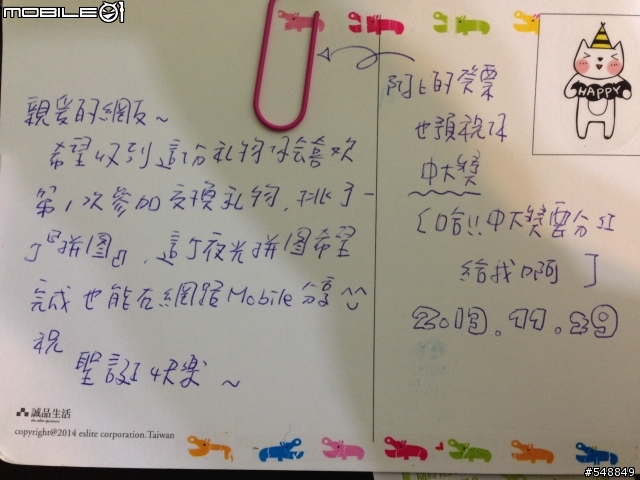 MOBILE01
親爱的網友~
希望收到這份礼物你会喜欢
第1次參加交換礼物,挑了一
了『拼图』,這了夜光拼图希望
完成也能在網路Mobile分享
祝
聖誕快樂~
誠品生活
the eslite spectrum
copyright@2014 eslite corporation.Taiwan
阿上的發票
也預祝你
中大獎
(哈!!中大獎要分红
給我啊)
2013.11.29
HAPPY
#548849